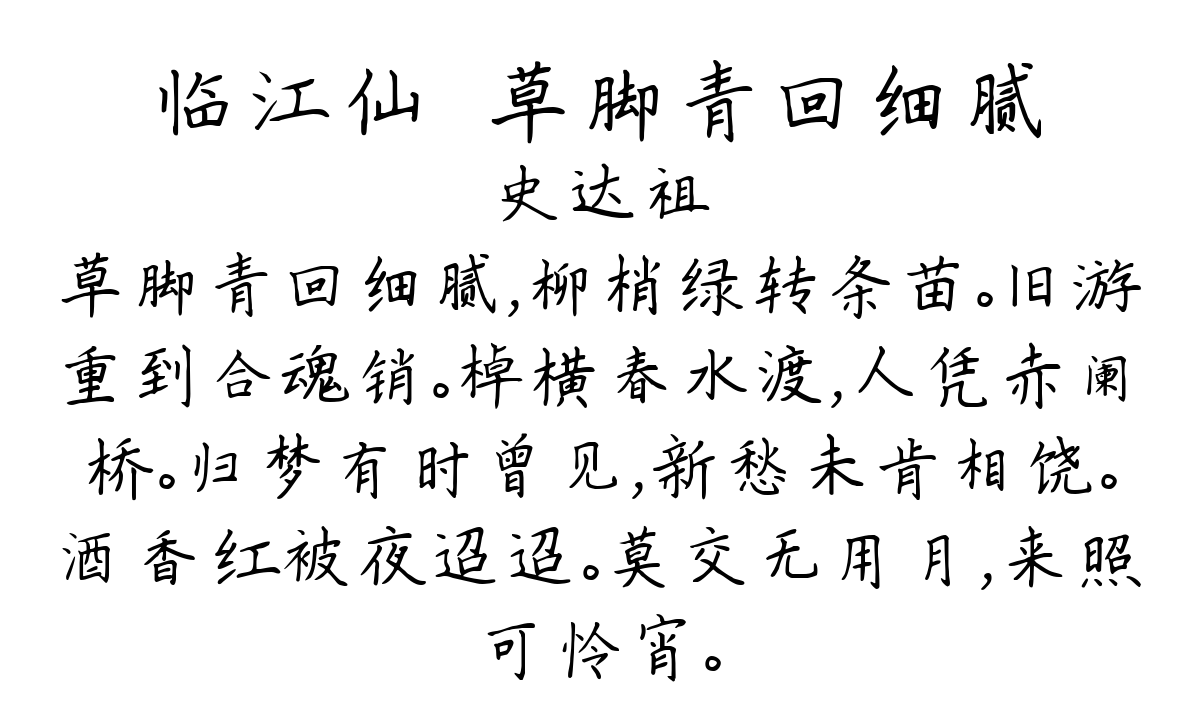 临江仙 草脚青回细腻
史达祖
草脚青回细腻,柳梢绿转条苗。旧游
重到合魂销。棹横春水渡,人凭赤阑
桥。归梦有时曾见,新愁未肯相饶。
酒香红被夜迢迢。莫交无用月,来照
可怜宵。